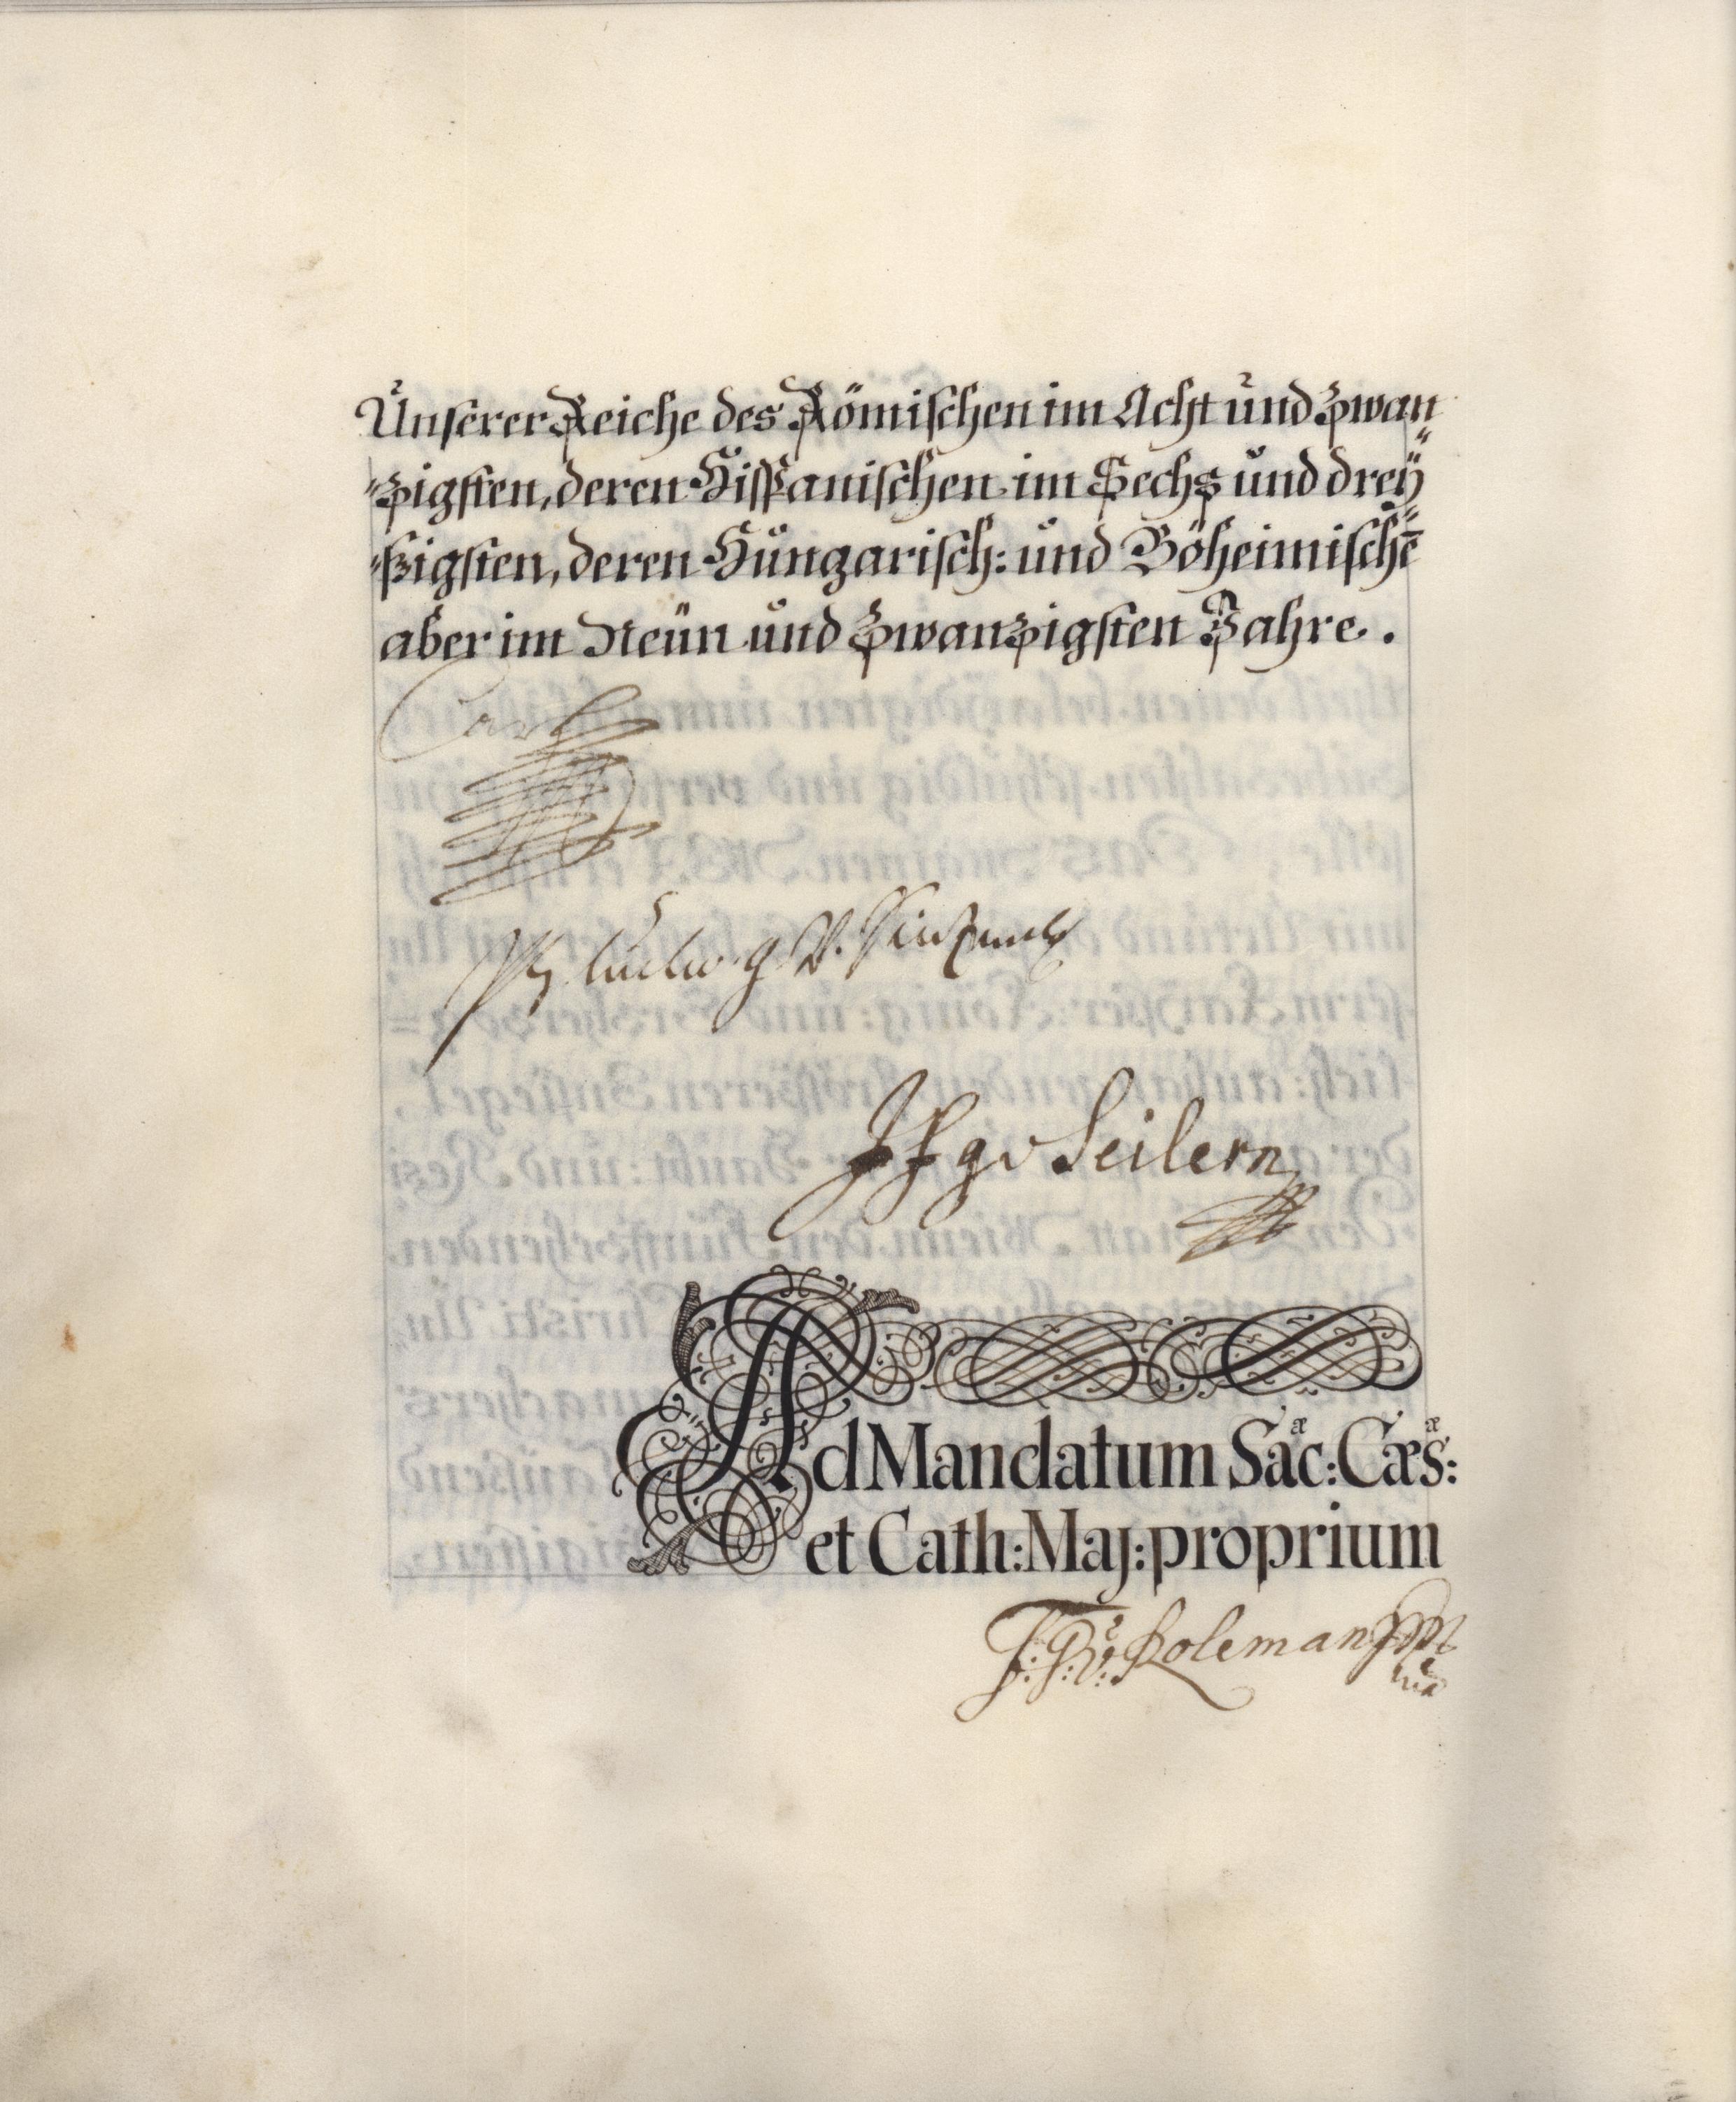 Unserer Reiche des Römischen im Acht und Zwan
"zigsten, deren Hispanischen im Sechs und dreÿ"
"ßigsten, deren Hungarisch: und Böheimischē
aber im Neün und Zwanzigsten Jahre.
Carl
Ludwig V.
JFgv Seilern
Ad Mandatum Sacæ: Cæsæ:
et Cath: Maj: proprium
J: J: V: Koleman